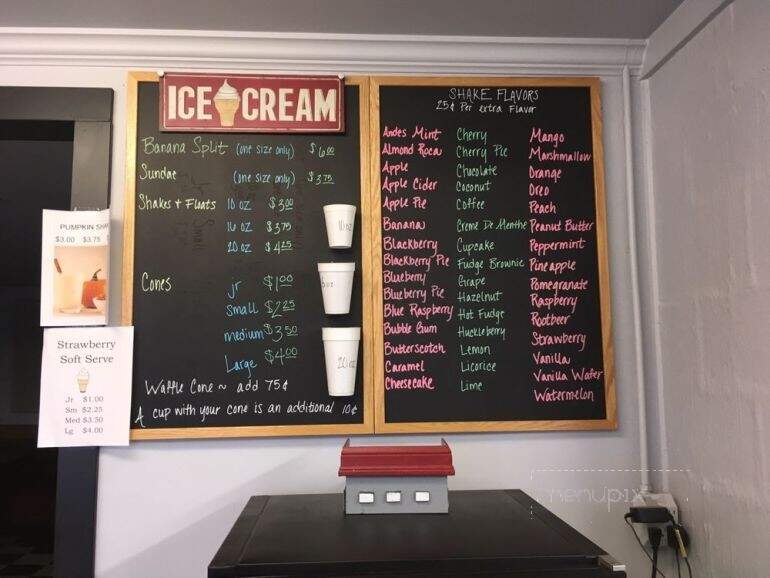 ICE CREAM
Banana Split (one size only) $6.00
Sundae (one size only) $3.75
Shakes & Floats 10 oz $3.00
16 oz $3.75
20 oz $4.25
Cones Jr $1.00
Small $2.25
medium $3.50
Large $4.00
Waffle Cone ~ add 75¢
A cup with your cone is an additional 10¢
SHAKE FLAVORS
25¢ Per extra Flavor
Andes Mint
Almond Roca
Apple
Apple Cider
Apple Pie
Banana
Blackberry
Blackberry Pie
Blueberry
Blueberry Pie
Blue Raspberry
Bubble Gum
Butterscotch
Caramel
Cheesecake
Cherry
Cherry Pie
Chocolate
Coconut
Coffee
Creme De Menthe
Cupcake
Fudge Brownie
Grape
Hazelnut
Hot Fudge
Huckleberry
Lemon
Licorice
Lime
Mango
Marshmallow
Orange
Oreo
Peach
Peanut Butter
Peppermint
Pineapple
Pomegranate
Raspberry
Rootbeer
Strawberry
Vanilla
Vanilla Wafer
Watermelon
PUMPKIN
$3.00 $3.75
Strawberry
Soft Serve
Jr $1.00
Sm $2.25
Med $3.50
Lg $4.00
menupix